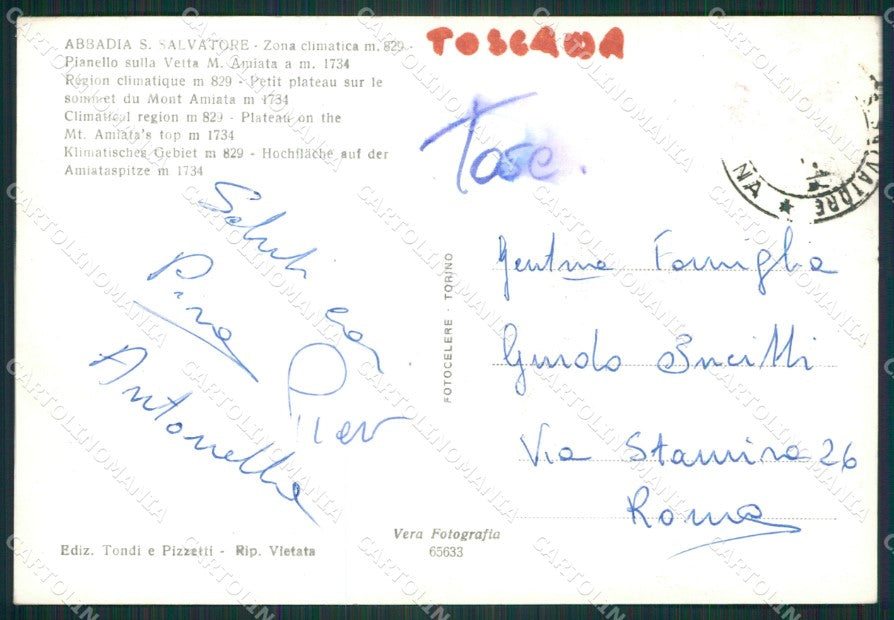 ABBADIA S. SALVATORE - Zona climatica m. 829 -
Pianello sulla Vetta M. Amiata a m. 1734
Région climatique m 829 - Petit plateau sur le
sommet du Mont Amiata m 1734
Climatical region m 829 - Plateau on the
Mt. Amiata's top m 1734
Klimatisches Gebiet m 829 - Hochfläche auf der
Amiataspitze m 1734
TOSCANA
Tosc.
SALVATORE ★
NA
Saluti
Pina
Antonella
FOTOCELERE - TORINO
Gentma Famiglia
Guido
Via Stamira 26
Roma
Vera Fotografia
65633
Ediz. Tondi e Pizzetti - Rip. Vietata
CARTOLINOMANIA